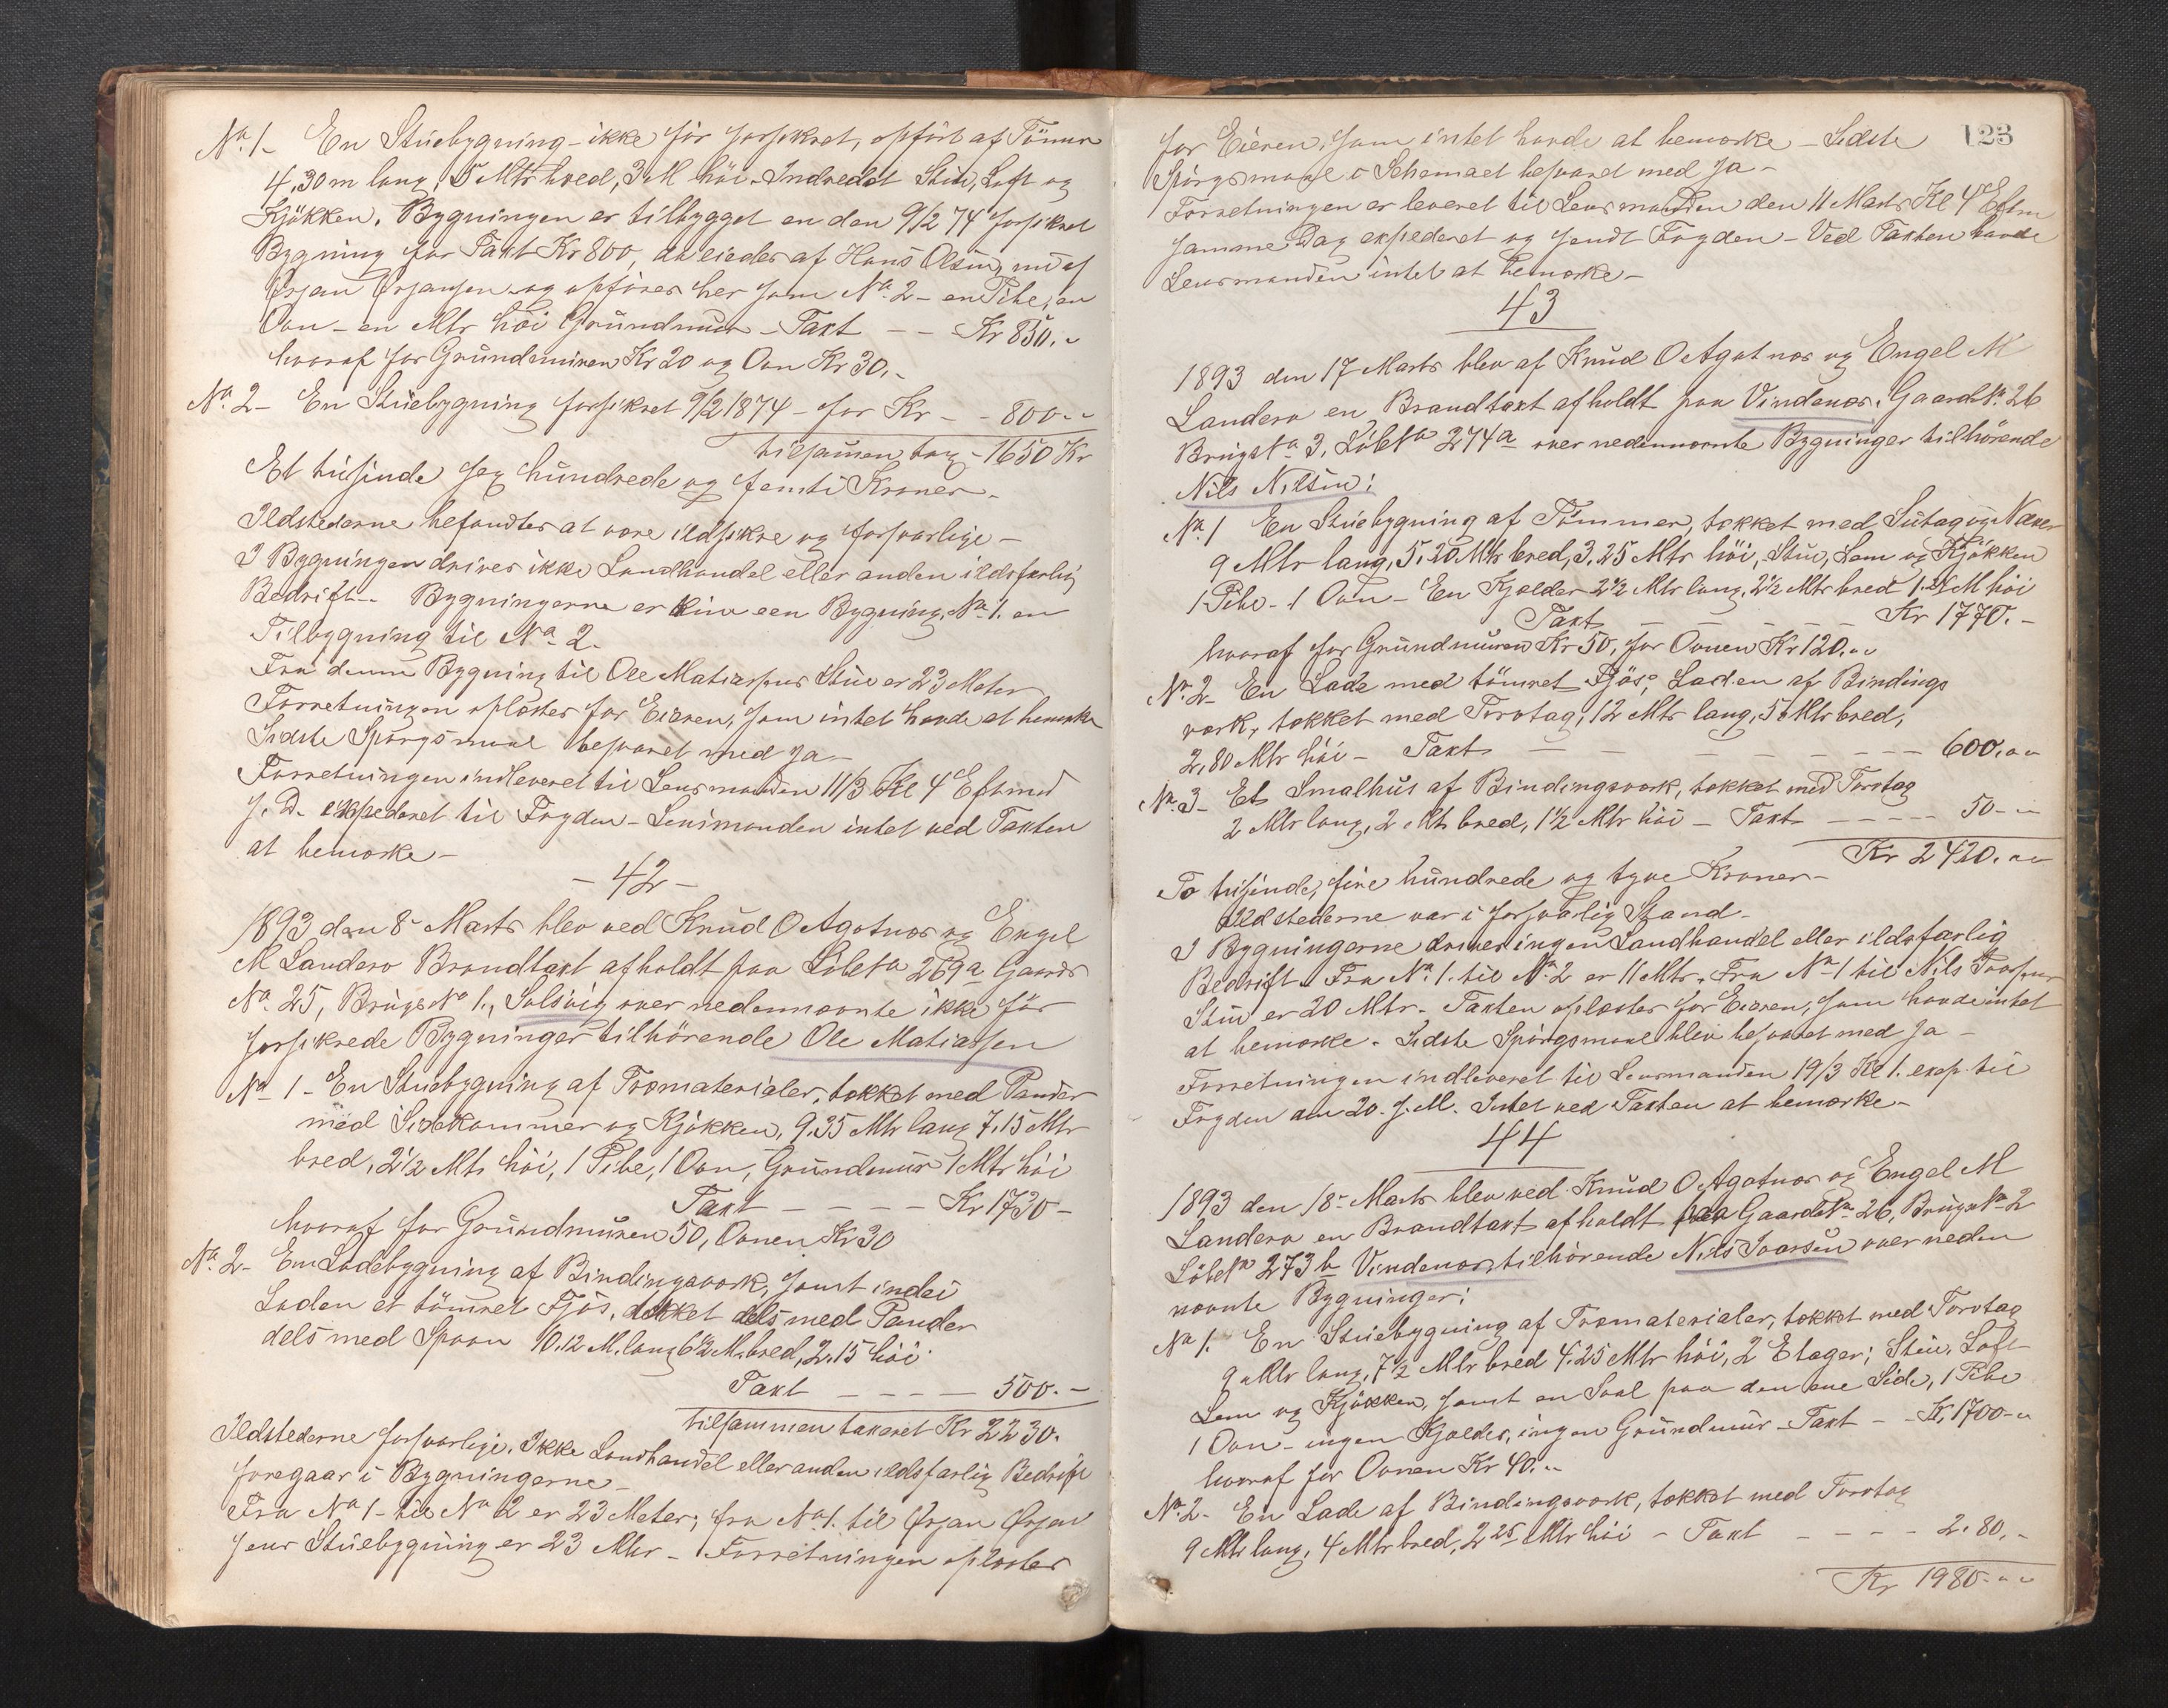 No. 1 - En Stuebygning - ikke før forsikret, opført af Tømmr
4,30 m lang, 5 Mtr bred, 3 M høi. Indredet Stue, Loft og
Kjøkken. Bygningen er tilbygget en den 9/2 74 forsikret
Bygning for Taxt Kr 800, da eiedes af Hans Olsen, nu af
Ørjan Ørjansen og opføres her som No. 2 - en Pibe, en
Ovn - en Mtr høi Grundmur - Taxt - - Kr 850. "
hvoraf for Grundmuren Kr 20 og Ovn Kr 30. -
No. 2 - En Stuebygning forsikret 9/2 1874 - for Kr - - 800 " "
tilsammen - 1650 Kr
Et tusinde sex hundrede og femti Kroner -
Ildstederne befandtes at være ildsikre og forsvarlige -
I Bygningen drives ikke Landhandel eller anden ildsfarlig
Bedrift - Bygningerne er kun een Bygning, No. 1. en
Tilbygning til No. 2.
Fra denne Bygning til Ole Matiassens Stue er 23 Meter
Forretningen oplæstes for Eieren, som intet havde at bemærke
Sidste Spørgsmaal besvaret med Ja -
Forretningen indleveret til Lensmanden 11/3 Kl 4 Eftmd
s. D. expederet til Fogden - Lensmanden intet ved Taxten
at bemærke -
- 42 -
1893 den 8 - Marts blev ved Knud O Agotnes og Engel
M Landero Brandtaxt afholdt paa Løbe No 269a Gaards
No. 25, Brugs No 1., Solsvig over nedennævnte ikke før
forsikrede Bygninger tilhørende Ole Matiassen
No 1 - En Stuebygning af Træmaterialer, tækket med Pander
med Sidekammer og Kjøkken, 9,35 Mtr lang 7,15 Mtr
bred, 2 1/2 Mtr høi, 1 Pibe, 1 Ovn, Grundmur 1 Mtr høi
Taxt - - - - - Kr 1730 -
hvoraf for Grundmuren 50, Ovnen Kr 30
No. 2 - En Ladebygning af Bindingsværk, samt inde i
Laden et tømret Fjøs, tækket dels med Pander
dels med Spaan 10.12 M. lang 6 1/2 M. bred, 2,15 høi
Taxt - - - - 500. -
tilsammen taxeret Kr 2230.
Ildstederne forsvarlige. Ikke Landhandel eller anden ildsfarlig Bedrift
foregaar i Bygningerne -
Fra No 1 - til No 2 er 23 Meter; fra No. 1. til Ørjan Ørjan
sens Stuebygning er 23 Mtr - Forretningen oplæstes
123
for Eieren, som intet havde at bemærke - Sidste
Spørgsmaal i Schemaet besvaret med Ja -
Forretningen er leveret til Lensmanden den 11 Marts Kl 4 Eftm
samme Dag expederet og sendt Fogden - Ved Taxten havde
Lensmanden intet at bemærke -
43
1893 den 17 Marts blev af Knud O Agotnes og Engel M
Landero en Brandtaxt afholdt paa Vindenes, Gaards No. 26
Brugs No. 3, Løbe No 274a over nedennævnte Bygninger tilhørende
Nils Nilsen:
No. 1 En Stuebygning af Tømmer, tækket med Sutag og Næver
9 Mtr lang, 5,20 Mtr bred, 3,25 Mtr høi, Stue, Lem og Kjøkken
1 Pibe - 1 Ovn - En Kjelder 2 1/2 Mtr lang, 2 1/2 Mtr bred M høi
Taxt - - - - - Kr 1770. -
hvoraf for Grundmuren Kr 50, for Ovnen Kr 120. " "
No. 2 - En Lade med tømret Fjøs, Laden af Bindings
værk, tækket med Torvtag, 12 Mtr lang, 5 Mtr bred,
2,80 Mtr høi - Taxt - - - - - - - - 600. " "
No. 3 - Et Smalhus af Bindingsværk, tækket med Torvtag
2 Mtr lang, 2 Mtr bred, 1 1/2 Mtr høi - Taxt - - - - - 50 - "
Kr 2420. " "
To tusinde, fire hundrede og tyve Kroner -
Ildstederne var i forsvarlig Stand -
I Bygningerne drives ingen Landhandel eller ildsfarlig
Bedrift. Fra No. 1. til No. 2 er 11 Mtr. Fra No 1 til Nils Ivarsens
Stue er 20 Mtr. Taxten oplæstes for Eieren, som havde intet
at bemærke. Sidste Spørgsmaal blev besvaret med Ja -
Forretningen indleveret til Lensmanden 19/3 Kl 1. exp. til
Fogden den 20. s. M. Intet ved Taxten at bemærke -
44
1893 den 18 - Marts blev ved Knud O. Agotnes og Engel M
Landero en Brandtaxt afholdt paa Gaards No. 26, Brugs No 2
Løbe No 273 b Vindenes, tilhørende Nils Ivarsen over neden
nævnte Bygninger:
No 1. En Stuebygning af Træmaterialer, tækket med Torvtag
9 Mtr lang, 7 1/2 Mtr bred 4,25 Mtr høi, 2 Etager; Stue, Loft
Lem og Kjøkken, samt en Sval paa den ene Side, 1 Pibe
1 Ovn - ingen Kjelder, ingen Grundmur - Taxt - - Kr 1700 - "
hvoraf for Ovnen Kr 40. " "
No. 2 - En Lade af Bindingsværk, tækket med Torvtag
9 Mtr lang, 4 Mtr bred, 2,25 Mtr høi - Taxt - - - - 2.80. -
Kr 1980 - " "